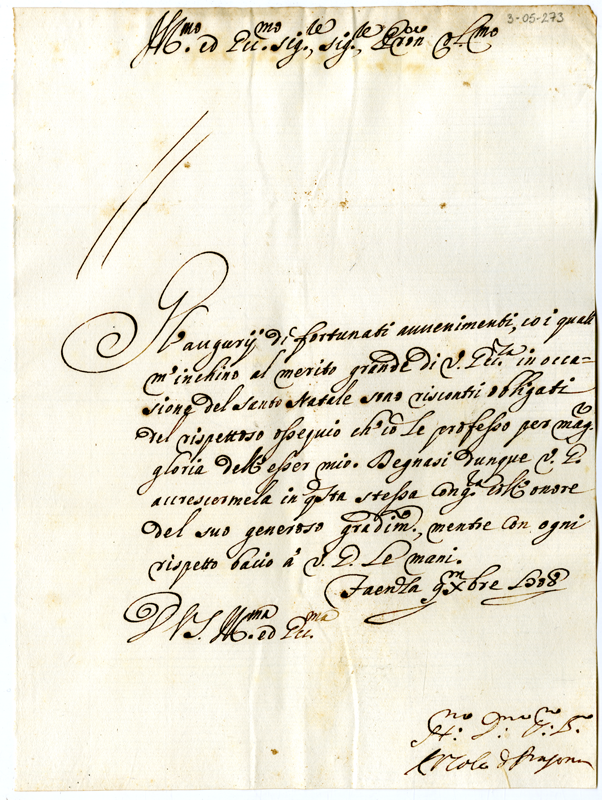 3-05-273
Ill.mo ed Ecc.mo Sig.re, Sig.re Pron Col.mo
Gl'augurij di fortunati avvenimenti, co i quali
m'inchino al merito grande di V. Ecc.za in occa-
sione del Santo Natale sono riscontri obligati
del rispettoso ossequio ch'io le professo per mag.r
gloria dell'esser mio. Degnasi dunque V. E.
accrescermela in q.sta stessa cong.ra coll'onore
del suo generoso gradim.to, mentre con ogni
rispetto bacio à V. E. le mani.
Faenza Xbre
D V. S. Ill.ma ed Ecc.ma
Ercole